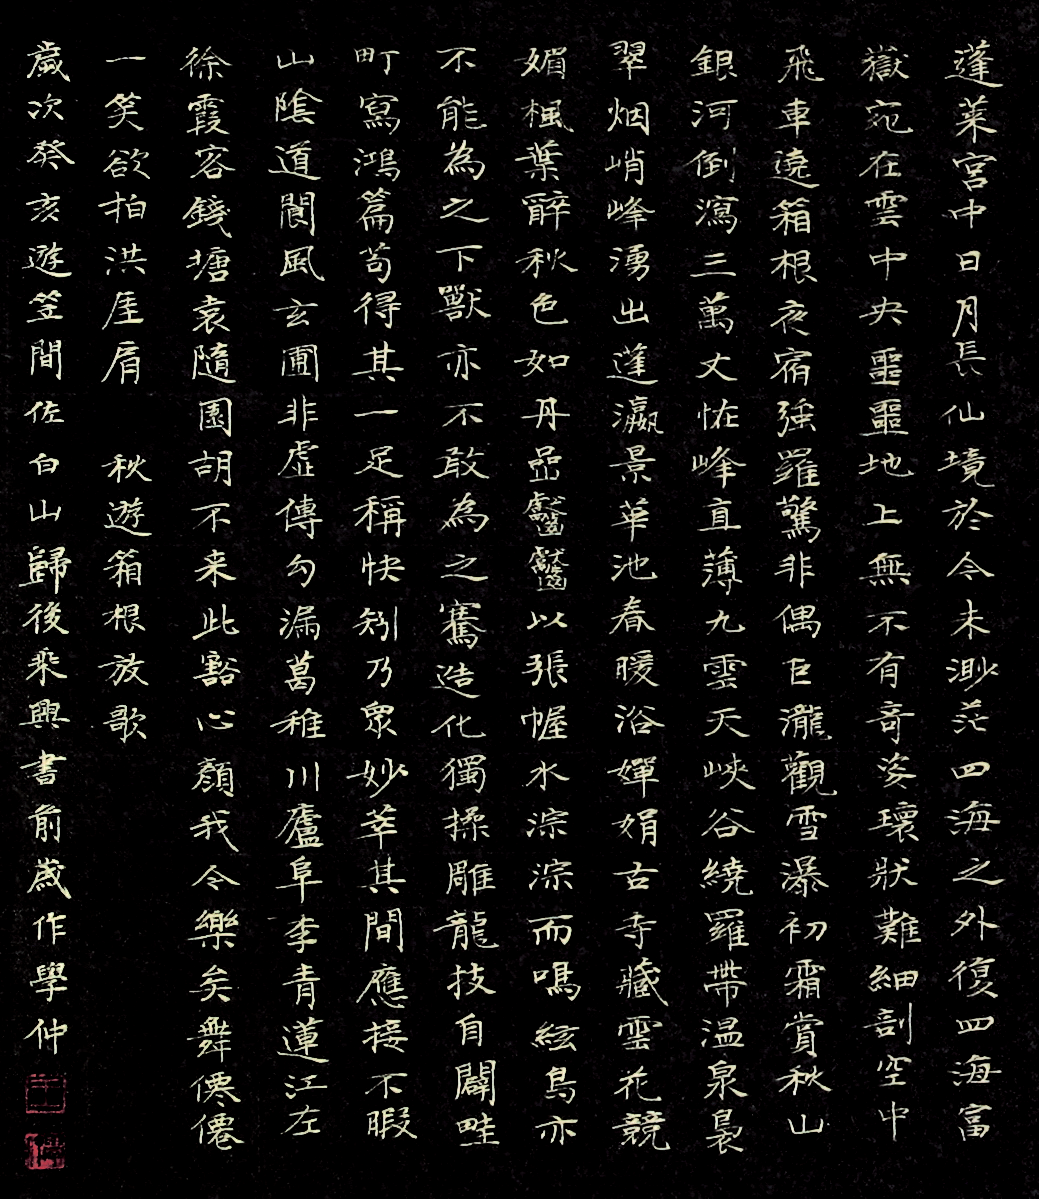 蓬萊宮中日月長仙境於今未渺茫四海之外復四海富
嶽宛在雲中央噩噩地上無不有奇姿瓌狀難細剖空中
飛車遶箱根夜宿強羅驚非偶巨瀧觀雪瀑初霜賞秋山
銀河倒瀉三萬丈怪峰直薄九雲天峽谷繞羅帶温泉裊
翠烟峭峰湧出蓬瀛景華池春暖浴嬋娟古寺藏雲花競
媚楓葉辭秋色如丹嵒以張幄水淙淙而鳴絃鳥亦
不能為之下獸亦不敢為之騫造化獨操雕龍技自闢畦
町寫鴻篇苟得其一足稱快矧乃衆妙萃其間應接不暇
山陰道閬風玄圃非虛傳勾漏葛稚川廬阜李青蓮江左
徐霞客錢塘袁隨園胡不来此豁心顏我今樂矣舞僛僊
一笑欲拍洪厓肩 秋遊箱根放歌
歲次癸亥遊笠間佐白山歸後乘興書前歲作學仲